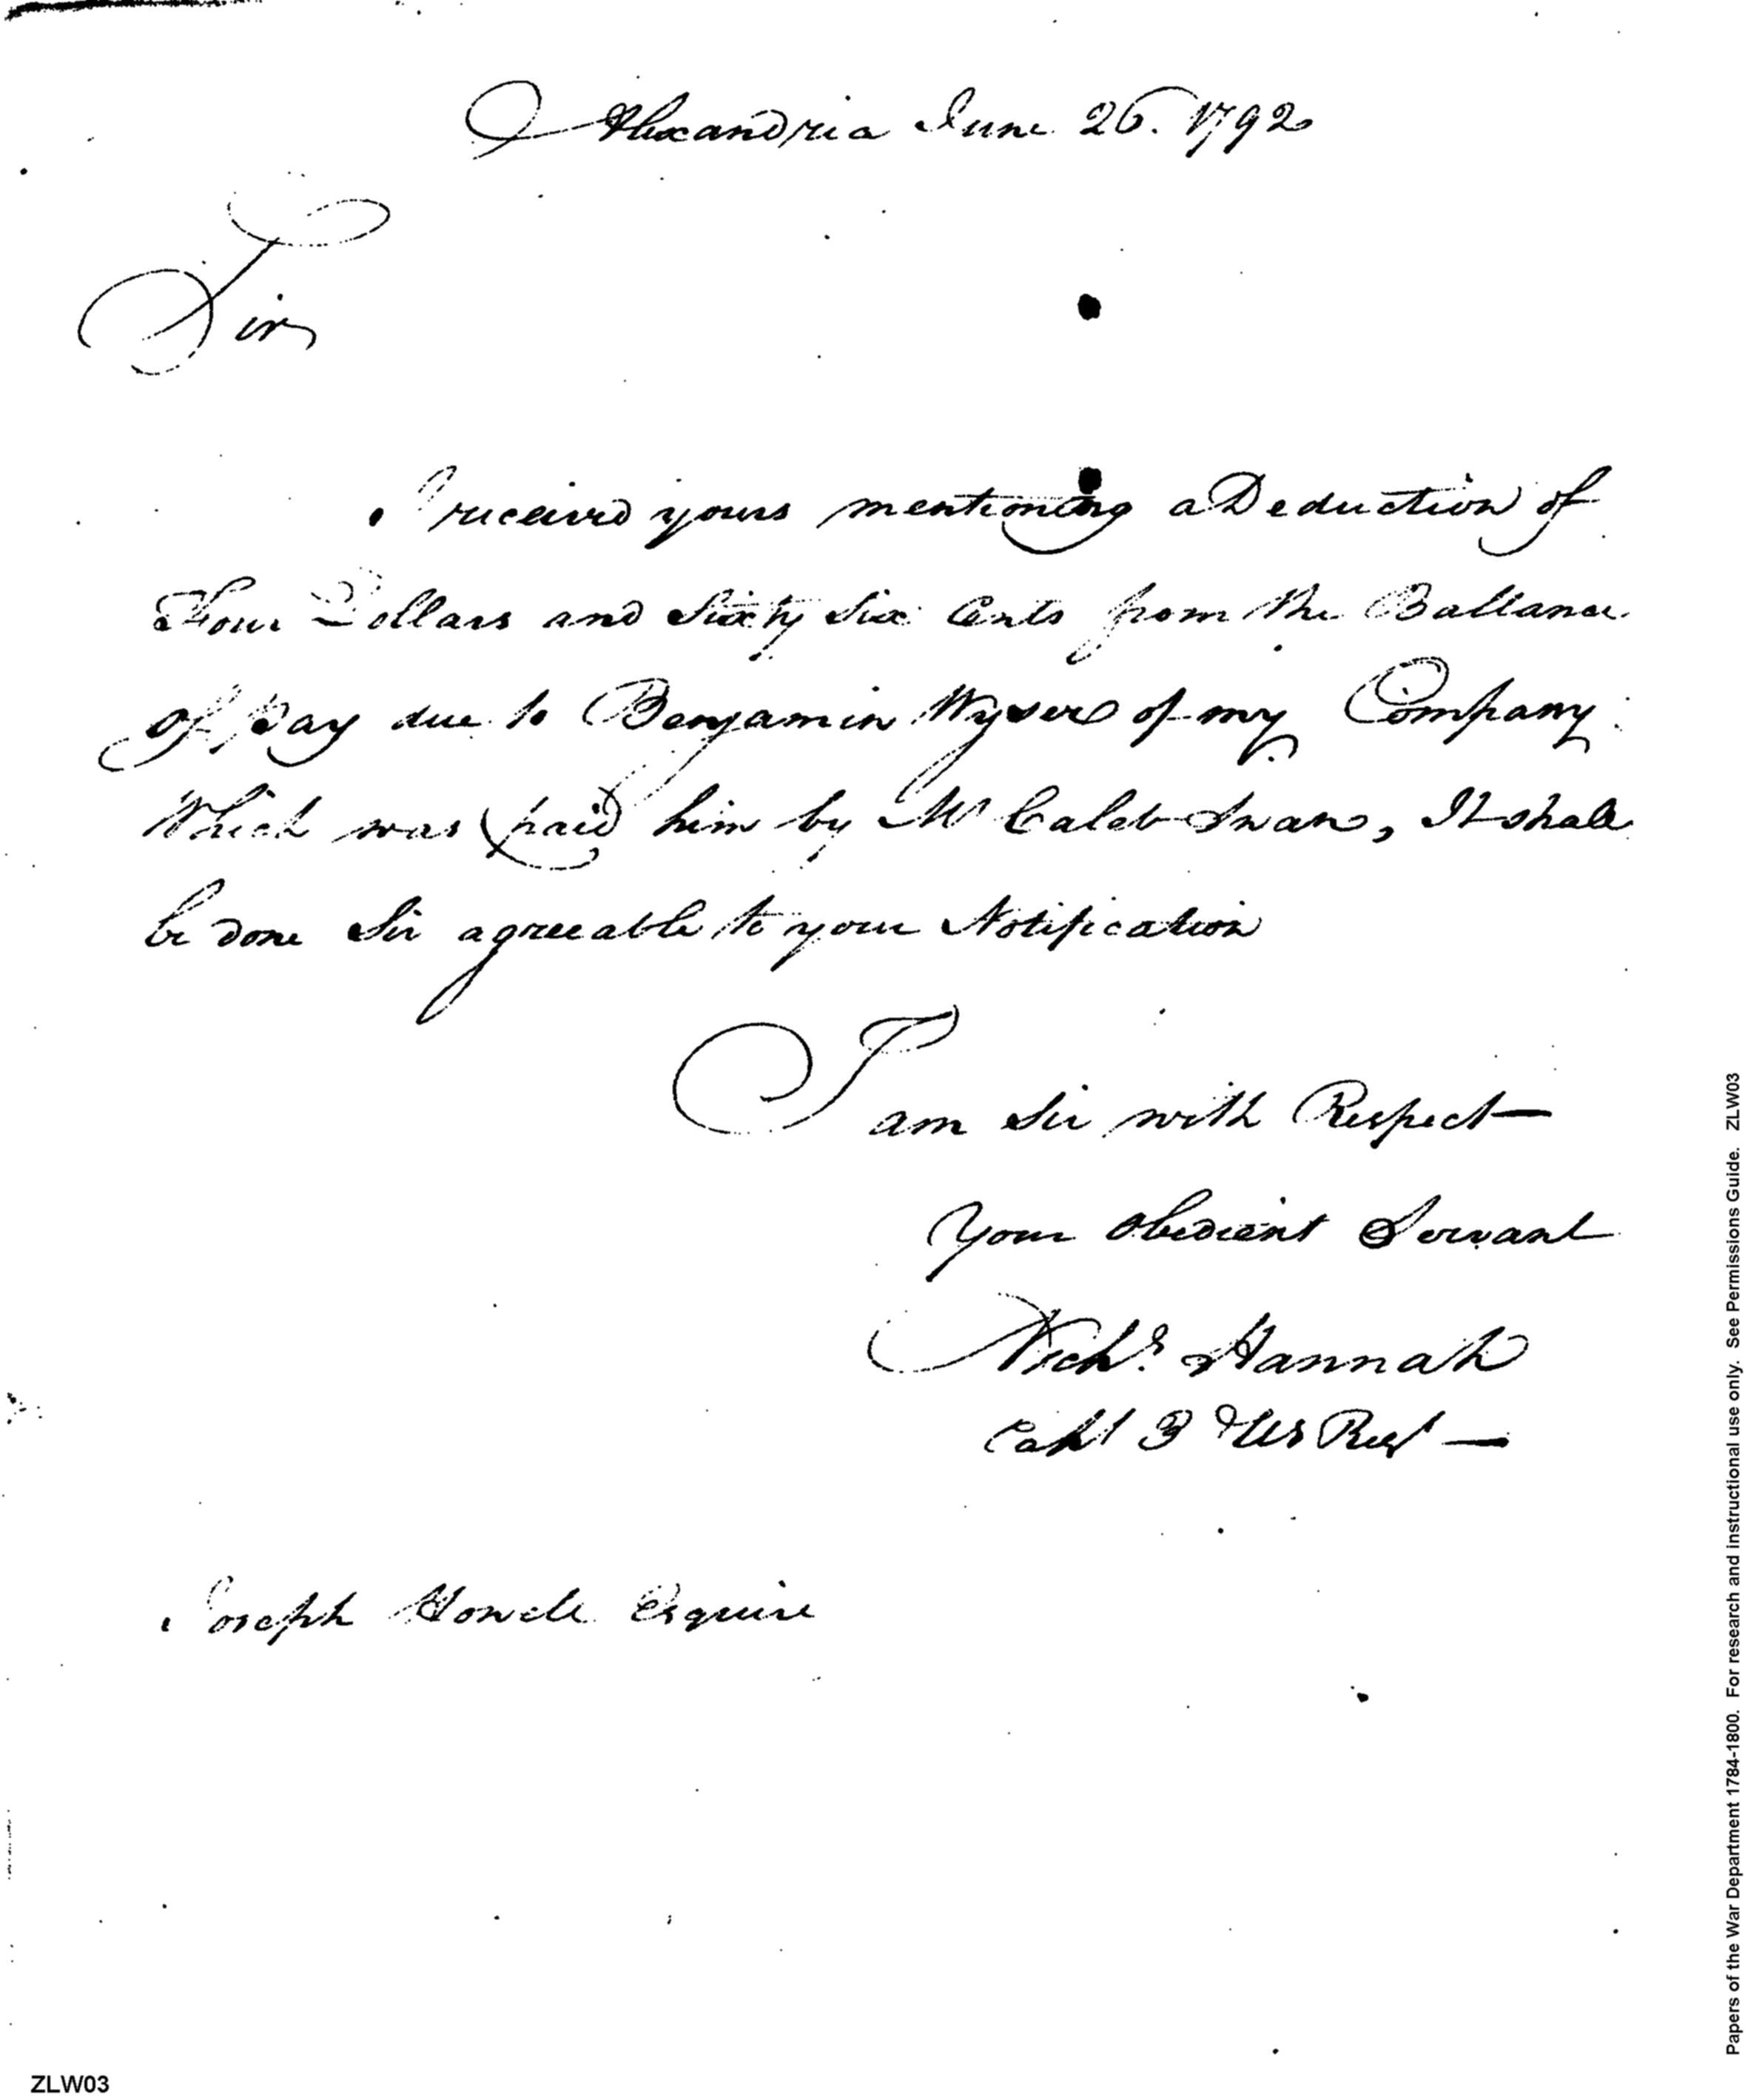 Alexandria June 26. 1792
Sir
I received yours mentioning a Deduction of
Four Dollars and Sixty Six Cents from the Ballance
Of Pay due to Benjamin Wyser of my Company
Which was paid him by Mr Caleb Swan, It shall
be done Sir agreeable to your Notification
I am Sir with Respect
Your Obedient Servant
Nichs. Hannah
Capt 3 US Regt
Joseph Howell Esquire
ZLW03
Papers of the War Department 1784-1800. For research and instructional use only. See Permissions Guide. ZLW03